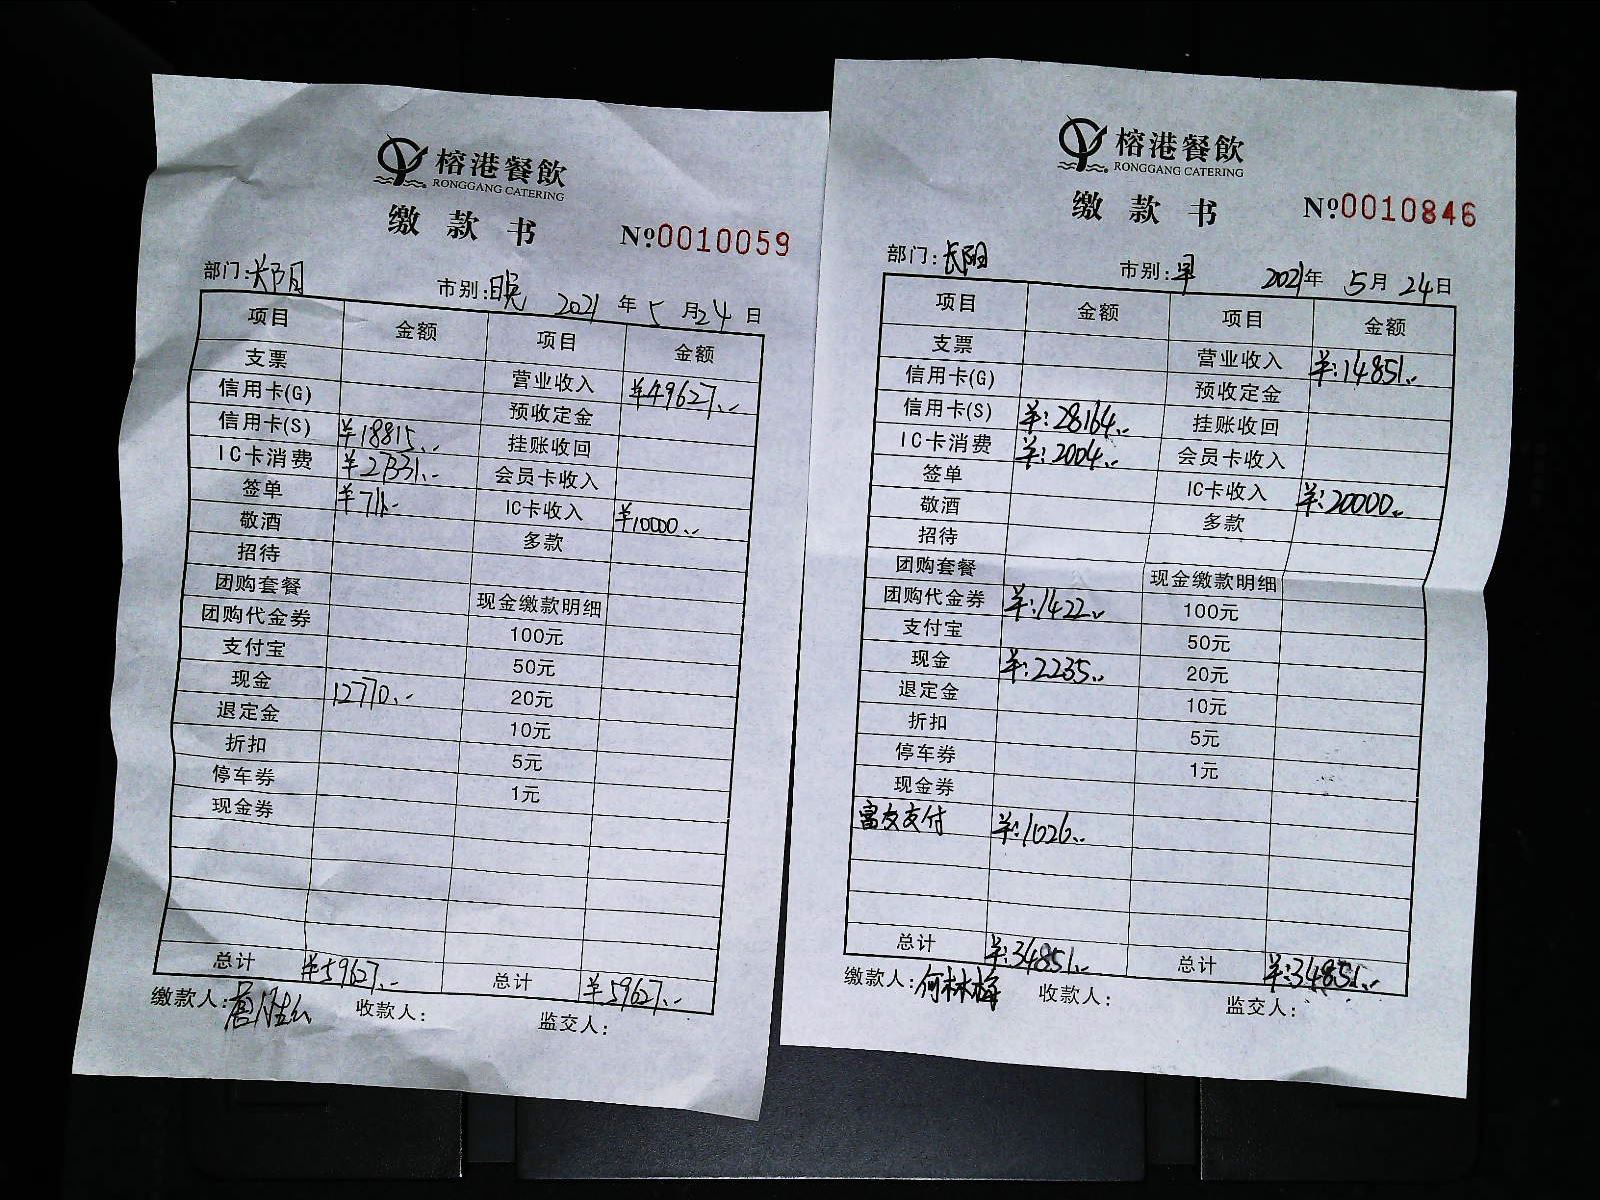 榕港餐飲
RONGGANG CATERING
缴款书 №0010059
部门:长阳 市别:晚 2021年5月24日
项目 金额 项目 金额
支票 营业收入 ¥49627.-
信用卡(G) 预收定金
信用卡(S) ¥18815.- 挂账收回
IC卡消费 ¥27331.- 会员卡收入
签单 ¥711.- IC卡收入 ¥10000.-
敬酒 多款
招待
团购套餐 现金缴款明细
团购代金券 100元
支付宝 50元
现金 12770.- 20元
退定金 10元
折扣 5元
停车券 1元
现金券
总计 ¥59627.- 总计 ¥59627.-
缴款人: 收款人: 监交人:
榕港餐飲
RONGGANG CATERING
缴款书 №0010846
部门:长阳 市别:早 2021年5月24日
项目 金额 项目 金额
支票 营业收入 ¥:14851.-
信用卡(G) 预收定金
信用卡(S) ¥:28164.- 挂账收回
IC卡消费 ¥:2004.- 会员卡收入
签单 IC卡收入 ¥:20000.-
敬酒 多款
招待
团购套餐 现金缴款明细
团购代金券 ¥:1422.- 100元
支付宝 50元
现金 ¥:2235.- 20元
退定金 10元
折扣 5元
停车券 1元
现金券
富友支付 ¥:1026.-
总计 ¥:34851.- 总计 ¥:34851.-
缴款人:何林梅 收款人: 监交人: